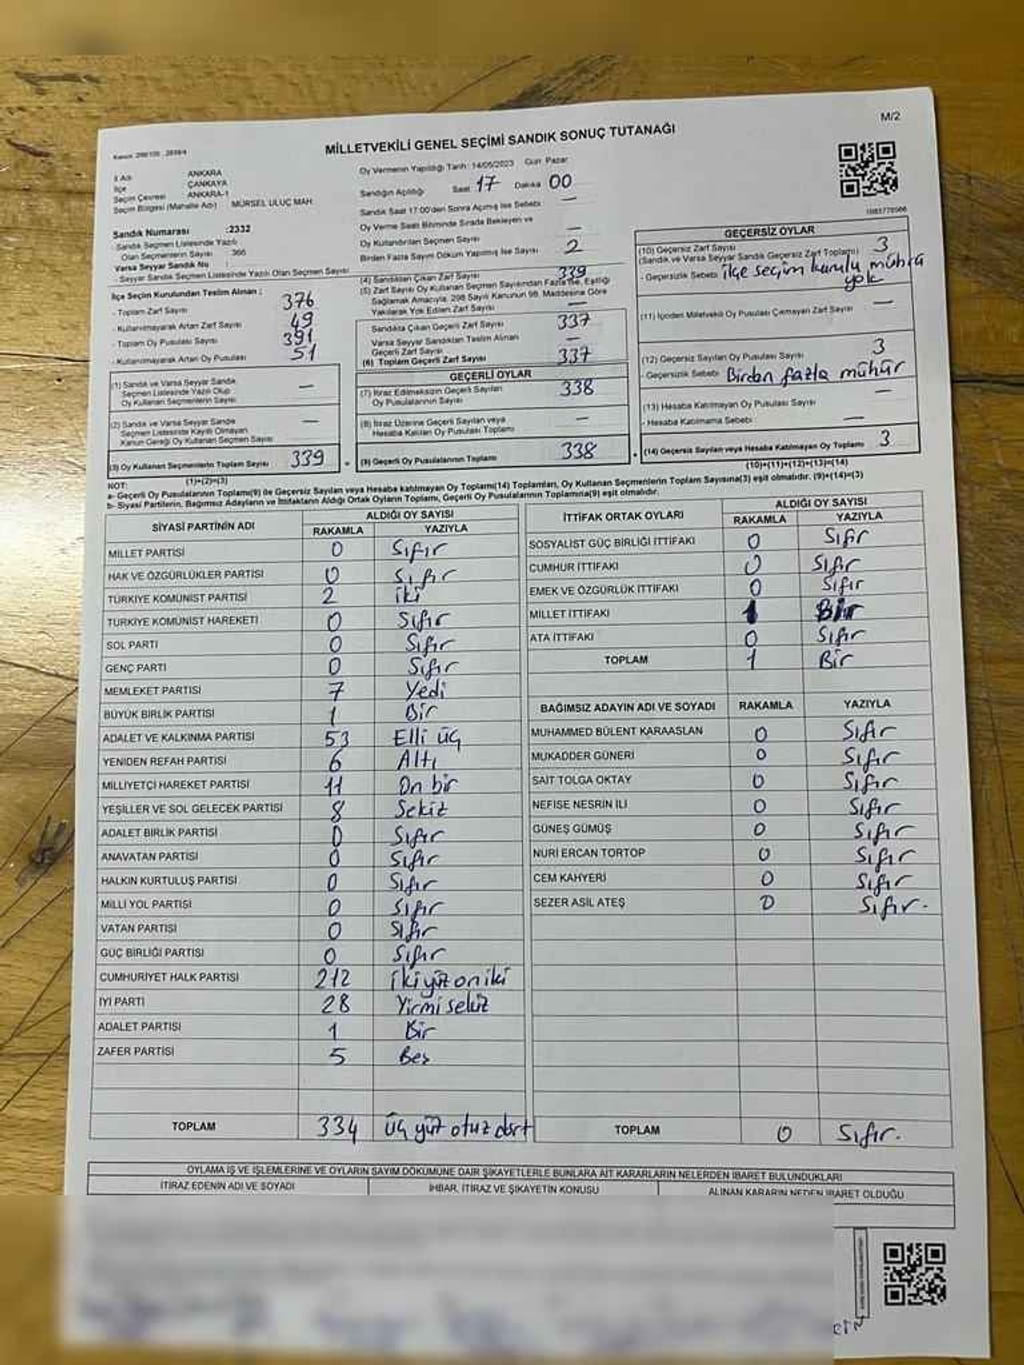 M/2
MİLLETVEKİLİ GENEL SEÇİMİ SANDIK SONUÇ TUTANAĞI
İl Adı ANKARA
İlçe ÇANKAYA
Seçim Çevresi ANKARA-1
Seçim Bölgesi (Mahalle Adı) MÜRSEL ULUÇ MAH.
Sandık Numarası :2332
Sandık Seçmen Listesinde Yazılı
Olan Seçmenlerin Sayısı : 366
Varsa Seyyar Sandık No :
- Seyyar Sandık Seçmen Listesinde Yazılı Olan Seçmen Sayısı
Oy Vermenin Yapıldığı Tarih: 14/05/2023 Gün: Pazar
Sandığın Açıldığı Saat 17 Dakika 00
Sandık Saat 17:00'den Sonra Açılmış İse Sebebi: —
Oy Verme Saati Bitiminde Sırada Bekleyen ve
Oy Kullandırılan Seçmen Sayısı —
Birden Fazla Sayım Dökum Yapılmış İse Sayısı 2
İlçe Seçim Kurulundan Teslim Alınan ;
- Toplam Zarf Sayısı 376
- Kullanılmayarak Artan Zarf Sayısı 49
- Toplam Oy Pusulası Sayısı 391
- Kullanılmayarak Artan Oy Pusulası 51
(1) Sandık ve Varsa Seyyar Sandık
Seçmen Listesinde Yazılı Olup
Oy Kullanan Seçmenlerin Sayısı —
(2) Sandık ve Varsa Seyyar Sandık
Seçmen Listesinde Kayıtlı Olmayan
Kanun Gereği Oy Kullanan Seçmen Sayısı —
(3) Oy Kullanan Seçmenlerin Toplam Sayısı 339
(1)+(2)=(3)
(4) Sandıktan Çıkan Zarf Sayısı 339
(5) Zarf Sayısı Oy Kullanan Seçmen Sayısından Fazla İse, Eşitliği
Sağlamak Amacıyla, 298 Sayılı Kanunun 98. Maddesine Göre
Yakılarak Yok Edilen Zarf Sayısı —
Sandıkta Çıkan Geçerli Zarf Sayısı 337
Varsa Seyyar Sandıktan Teslim Alınan
Geçerli Zarf Sayısı —
(6) Toplam Geçerli Zarf Sayısı 337
GEÇERLİ OYLAR
(7) İtiraz Edilmeksizin Geçerli Sayılan
Oy Pusulalarının Sayısı 338
(8) İtiraz Üzerine Geçerli Sayılan veya
Hesaba Katılan Oy Pusulası Toplamı —
(9) Geçerli Oy Pusulalarının Toplamı 338
GEÇERSİZ OYLAR
(10) Geçersiz Zarf Sayısı
(Sandık ve Varsa Seyyar Sandık Geçersiz Zarf Toplamı) 3
- Geçersizlik Sebebi ilçe seçim kurulu mührü
yok
(11) İçinden Milletvekili Oy Pusulası Çıkmayan Zarf Sayısı —
(12) Geçersiz Sayılan Oy Pusulası Sayısı 3
- Geçersizlik Sebebi Birden fazla mühür
(13) Hesaba Katılmayan Oy Pusulası Sayısı —
- Hesaba Katılmama Sebebi —
(14) Geçersiz Sayılan veya Hesaba Katılmayan Oy Toplamı 3
(10)+(11)+(12)+(13)=(14)
NOT:
a- Geçerli Oy Pusulalarının Toplamı(9) ile Geçersiz Sayılan veya Hesaba katılmayan Oy Toplamı(14) Toplamları, Oy Kullanan Seçmenlerin Toplam Sayısına(3) eşit olmalıdır. (9)+(14)=(3)
b- Siyasi Partilerin, Bağımsız Adayların ve İttifakların Aldığı Ortak Oyların Toplamı, Geçerli Oy Pusulalarının Toplamına(9) eşit olmalıdır.
SİYASİ PARTİNİN ADI ALDIĞI OY SAYISI
RAKAMLA YAZIYLA
MİLLET PARTİSİ 0 Sıfır
HAK VE ÖZGÜRLÜKLER PARTİSİ 0 Sıfır
TÜRKİYE KOMÜNİST PARTİSİ 2 iki
TÜRKİYE KOMÜNİST HAREKETİ 0 Sıfır
SOL PARTİ 0 Sıfır
GENÇ PARTİ 0 Sıfır
MEMLEKET PARTİSİ 7 Yedi
BÜYÜK BİRLİK PARTİSİ 1 Bir
ADALET VE KALKINMA PARTİSİ 53 Elli üç
YENİDEN REFAH PARTİSİ 6 Altı
MİLLİYETÇİ HAREKET PARTİSİ 11 On bir
YEŞİLLER VE SOL GELECEK PARTİSİ 8 Sekiz
ADALET BİRLİK PARTİSİ 0 Sıfır
ANAVATAN PARTİSİ 0 Sıfır
HALKIN KURTULUŞ PARTİSİ 0 Sıfır
MİLLİ YOL PARTİSİ 0 Sıfır
VATAN PARTİSİ 0 Sıfır
GÜÇ BİRLİĞİ PARTİSİ 0 Sıfır
CUMHURİYET HALK PARTİSİ 212 ikiyüz on iki
İYİ PARTİ 28 Yirmi sekiz
ADALET PARTİSİ 1 Bir
ZAFER PARTİSİ 5 Beş
TOPLAM 334 üç yüz otuz dört
İTTİFAK ORTAK OYLARI ALDIĞI OY SAYISI
RAKAMLA YAZIYLA
SOSYALİST GÜÇ BİRLİĞİ İTTİFAKI 0 Sıfır
CUMHUR İTTİFAKI 0 Sıfır
EMEK VE ÖZGÜRLÜK İTTİFAKI 0 Sıfır
MİLLET İTTİFAKI 1 Bir
ATA İTTİFAKI 0 Sıfır
TOPLAM 1 Bir
BAĞIMSIZ ADAYIN ADI VE SOYADI RAKAMLA YAZIYLA
MUHAMMED BÜLENT KARAASLAN 0 Sıfır
MUKADDER GÜNERİ 0 Sıfır
SAİT TOLGA OKTAY 0 Sıfır
NEFİSE NESRİN İLİ 0 Sıfır
GÜNEŞ GÜMÜŞ 0 Sıfır
NURİ ERCAN TORTOP 0 Sıfır
CEM KAHYERİ 0 Sıfır
SEZER ASİL ATEŞ 0 Sıfır.
TOPLAM 0 Sıfır.
OYLAMA İŞ VE İŞLEMLERİNE VE OYLARIN SAYIM DÖKÜMÜNE DAİR ŞİKAYETLERLE BUNLARA AİT KARARLARIN NELERDEN İBARET BULUNDUKLARI
İTİRAZ EDENİN ADI VE SOYADI İHBAR, İTİRAZ VE ŞİKAYETİN KONUSU ALINAN KARARIN NEDEN İBARET OLDUĞU